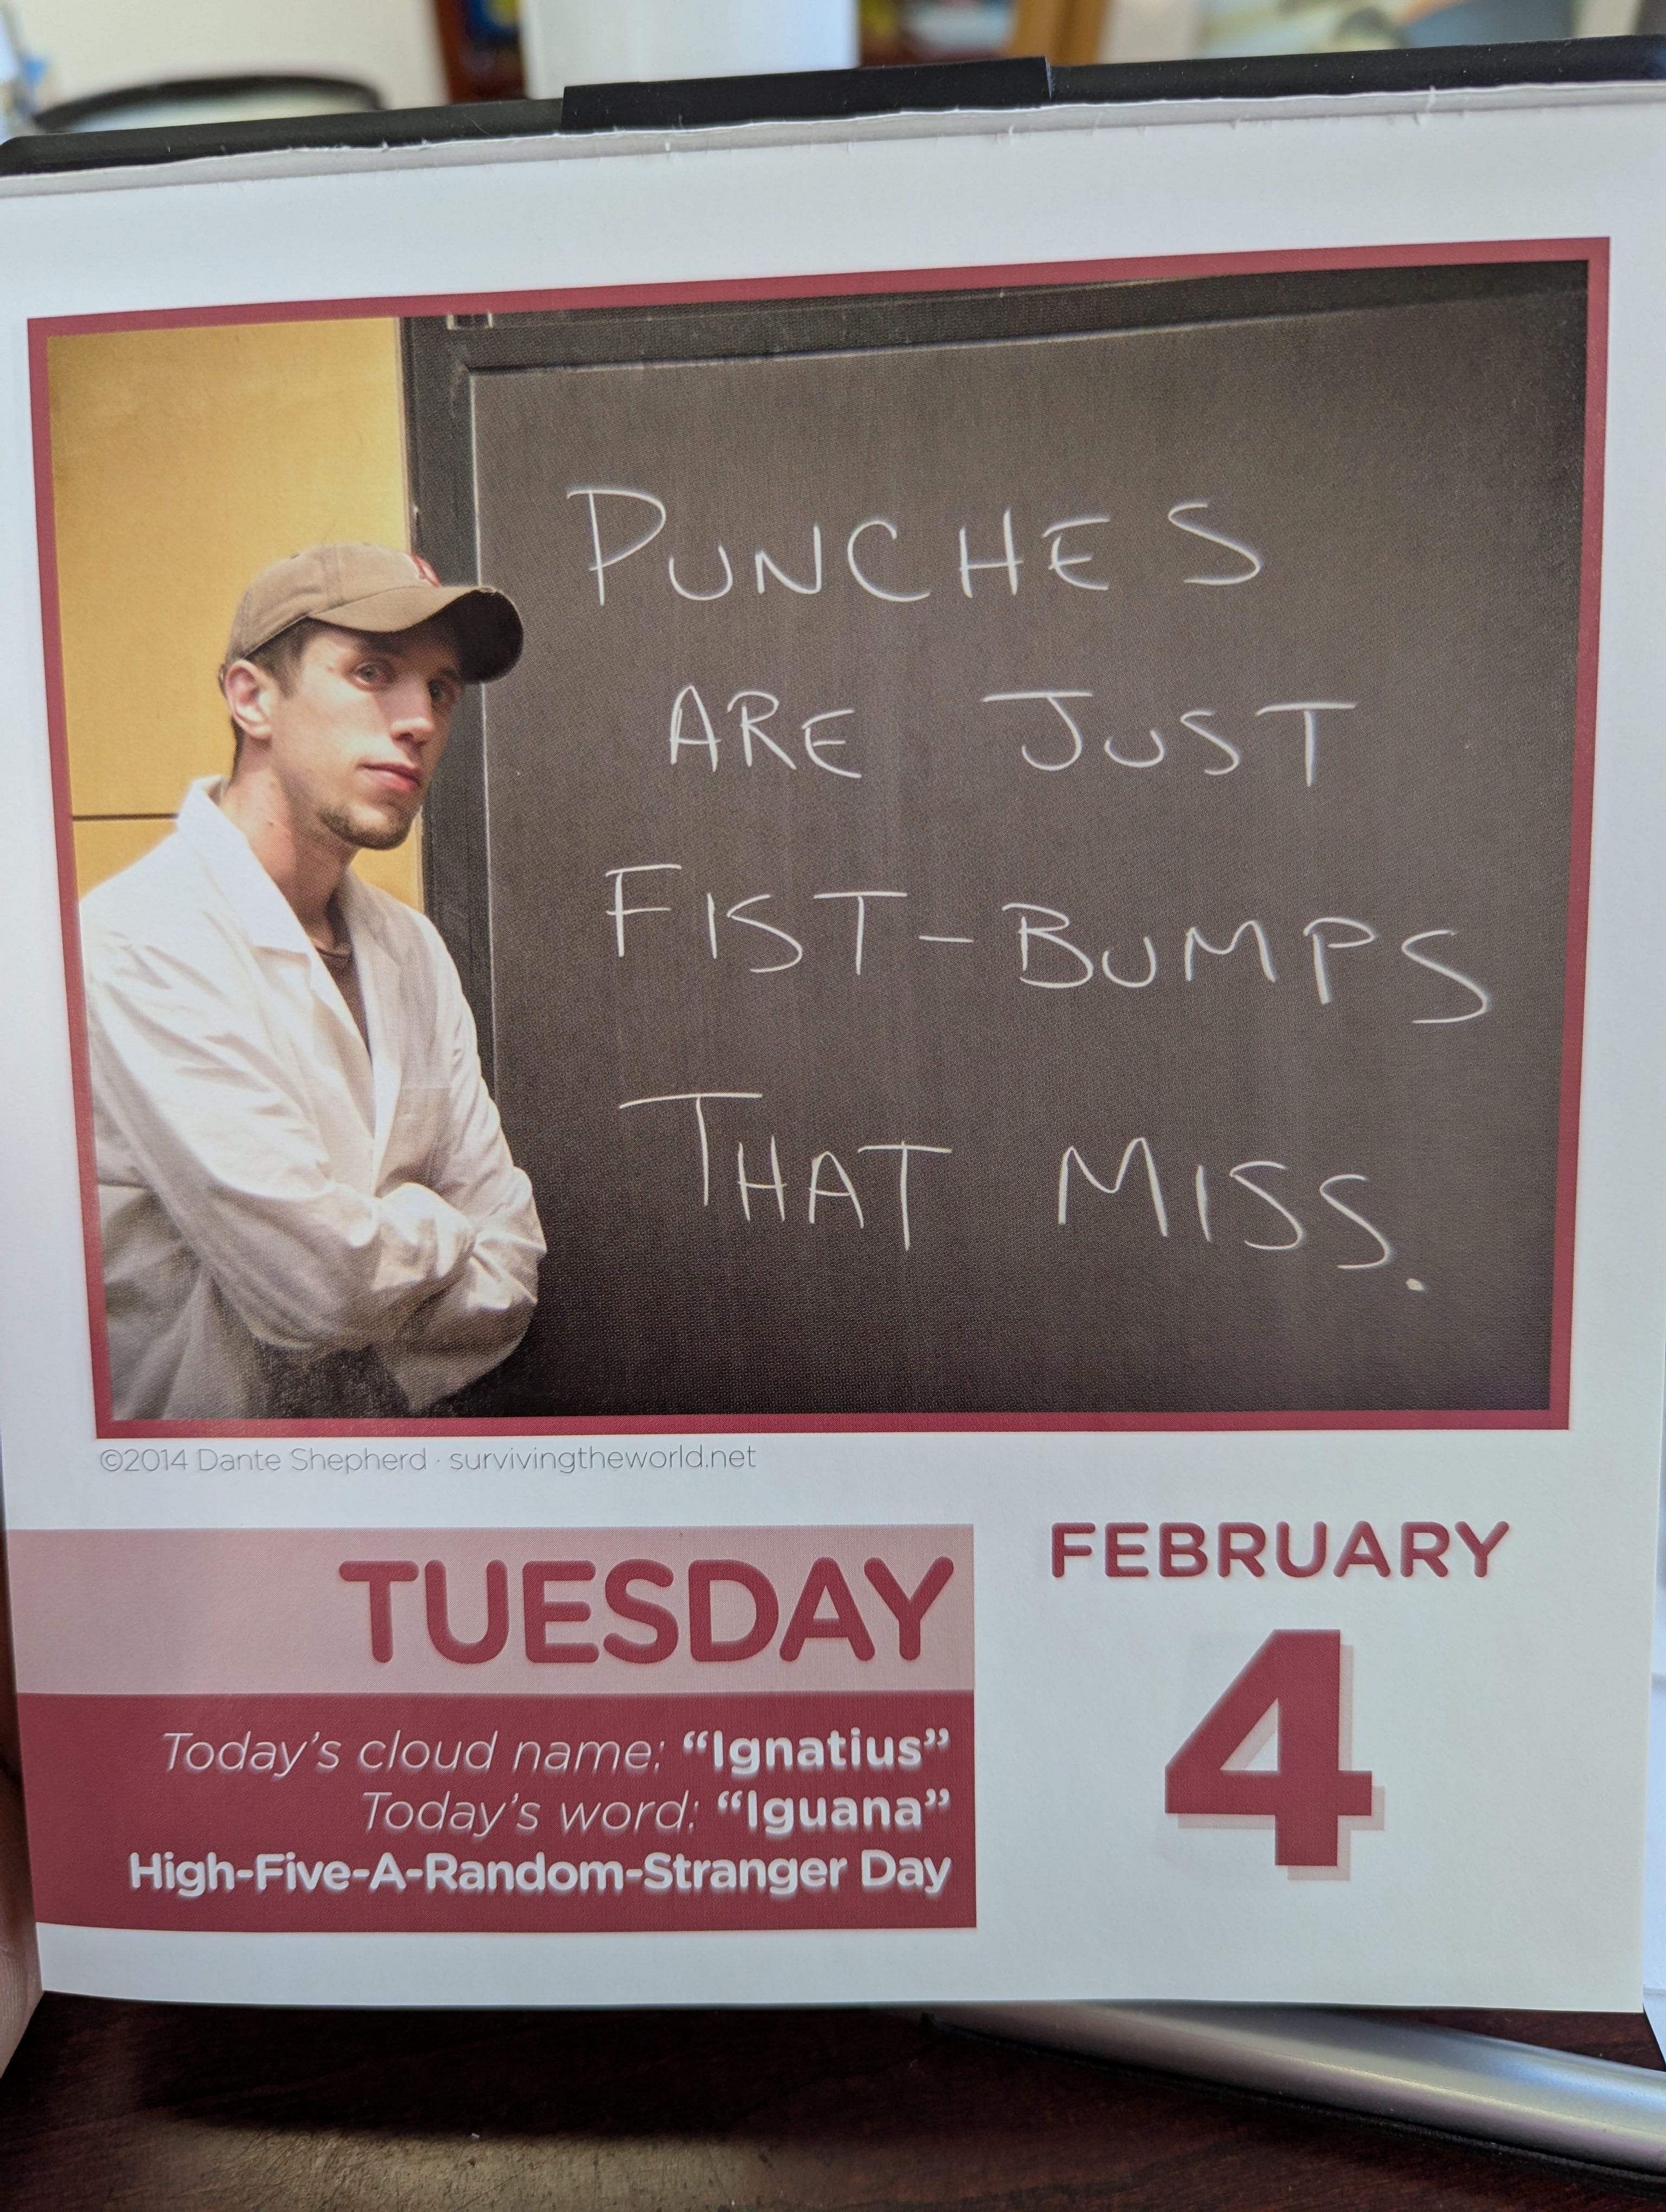 PUNCHES
ARE JUST
FIST-BUMPS
THAT MISS.
©2014 Dante Shepherd · survivingtheworld.net
TUESDAY
Today's cloud name: “Ignatius”
Today's word: “Iguana”
High-Five-A-Random-Stranger Day
FEBRUARY
4